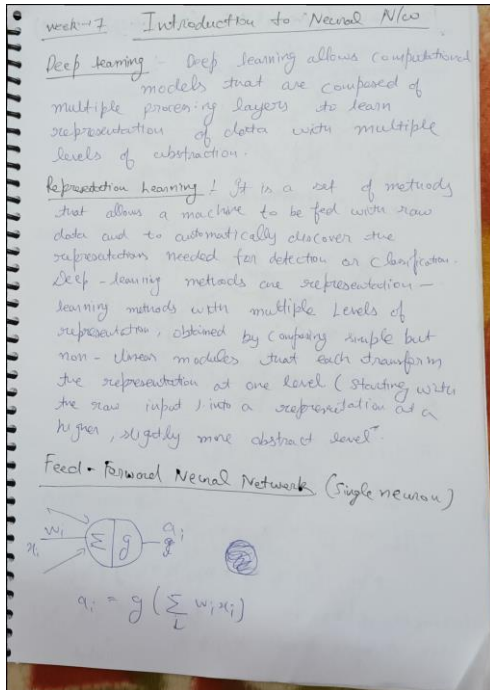 week-7 Introduction to Neural N/w
Deep learning :- Deep learning allows computational
models that are composed of
multiple processing layers to learn
representation of data with multiple
levels of abstraction.
Representation Learning : It is a set of methods
that allows a machine to be fed with raw
data and to automatically discover the
representations needed for detection or classification.
Deep-learning methods are representation-
learning methods with multiple Levels of
representation, obtained by composing simple but
non-linear modules that each transform
the representation at one level (starting with
the raw input) into a representation at a
higher, slightly more abstract level.
Feed-Forward Neural Network (single neuron)
wi ai
xi Σ g
ai = g(Σ wixi)
i